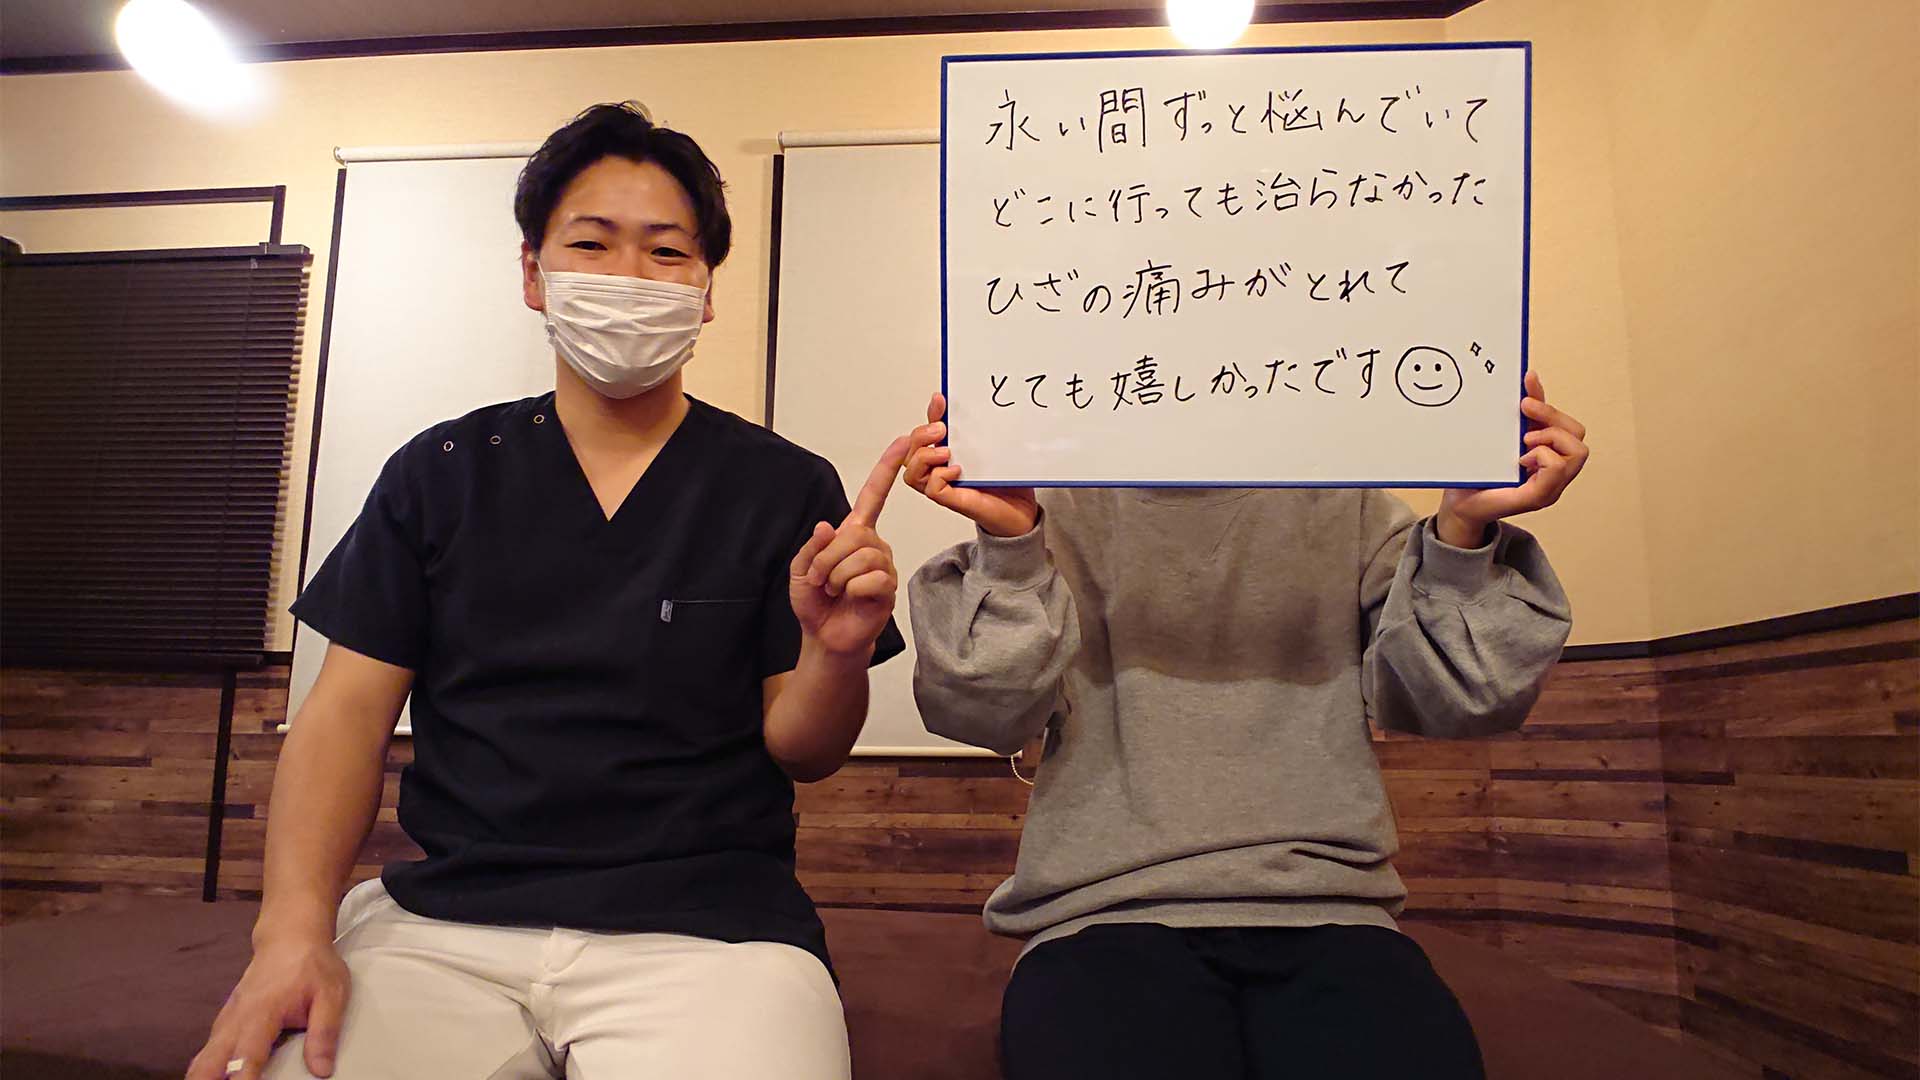 永い間ずっと悩んでいて
どこに行っても治らなかった
ひざの痛みがとれて
とても嬉しかったです